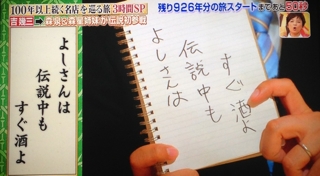 100年以上続く名店を巡る旅3時間SP
吉幾三➡森泉&森星姉妹が伝説初参戦
残り926年分の旅スタートまであと30秒
よしさんは
伝説中も
すぐ酒よ
すぐ酒よ
伝説中も
よしさんは